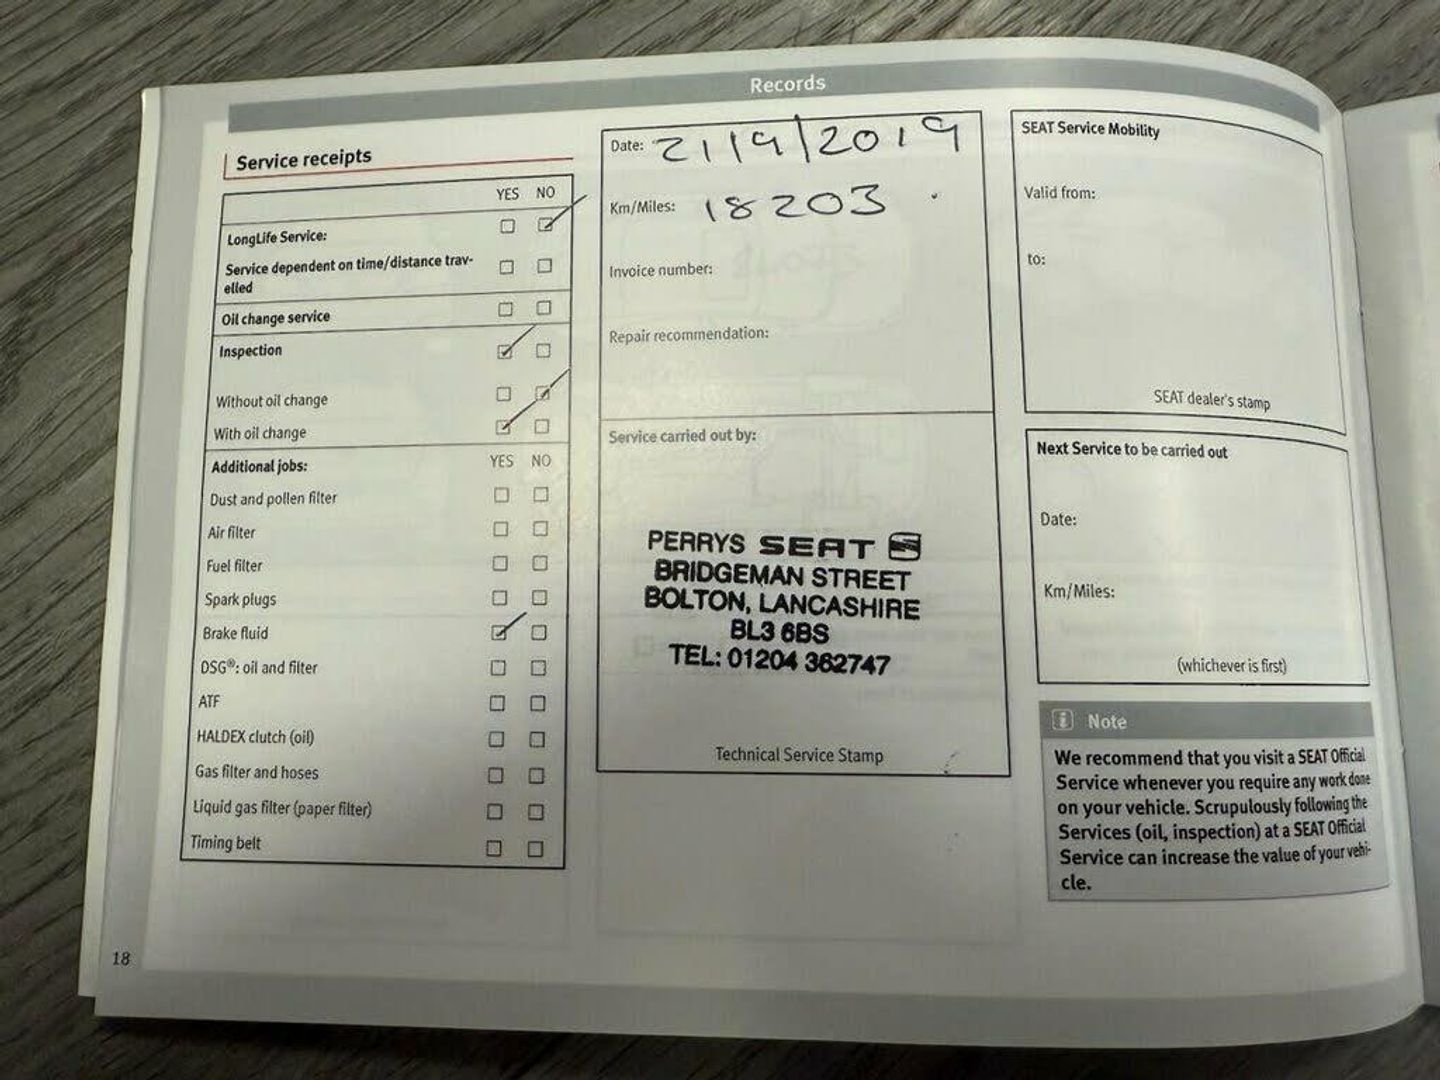 Records
Service receipts
YES NO
LongLife Service:
Service dependent on time/distance trav-
elled
Oil change service
Inspection
Without oil change
With oil change
Additional jobs: YES NO
Dust and pollen filter
Air filter
Fuel filter
Spark plugs
Brake fluid
DSG®: oil and filter
ATF
HALDEX clutch (oil)
Gas filter and hoses
Liquid gas filter (paper filter)
Timing belt
18
Date: 21/9/2019
Km/Miles: 18203
Invoice number:
Repair recommendation:
Service carried out by:
PERRYS SEAT
BRIDGEMAN STREET
BOLTON, LANCASHIRE
BL3 6BS
TEL: 01204 362747
Technical Service Stamp
SEAT Service Mobility
Valid from:
to:
SEAT dealer's stamp
Next Service to be carried out
Date:
Km/Miles:
(whichever is first)
i Note
We recommend that you visit a SEAT Official
Service whenever you require any work done
on your vehicle. Scrupulously following the
Services (oil, inspection) at a SEAT Official
Service can increase the value of your vehi-
cle.